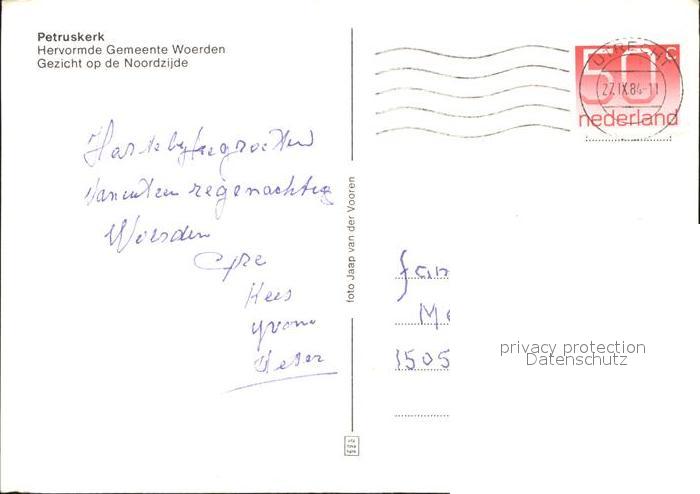 Petruskerk
Hervormde Gemeente Woerden
Gezicht op de Noordzijde
UTRECHT
27.IX.84-11
50 c
nederland
Hartelijke groeten
vanuit een regenachtig
Woerden
Kees
Yvonne
foto Jaap van der Vooren
fam
Me
1505
privacy protection
Datenschutz